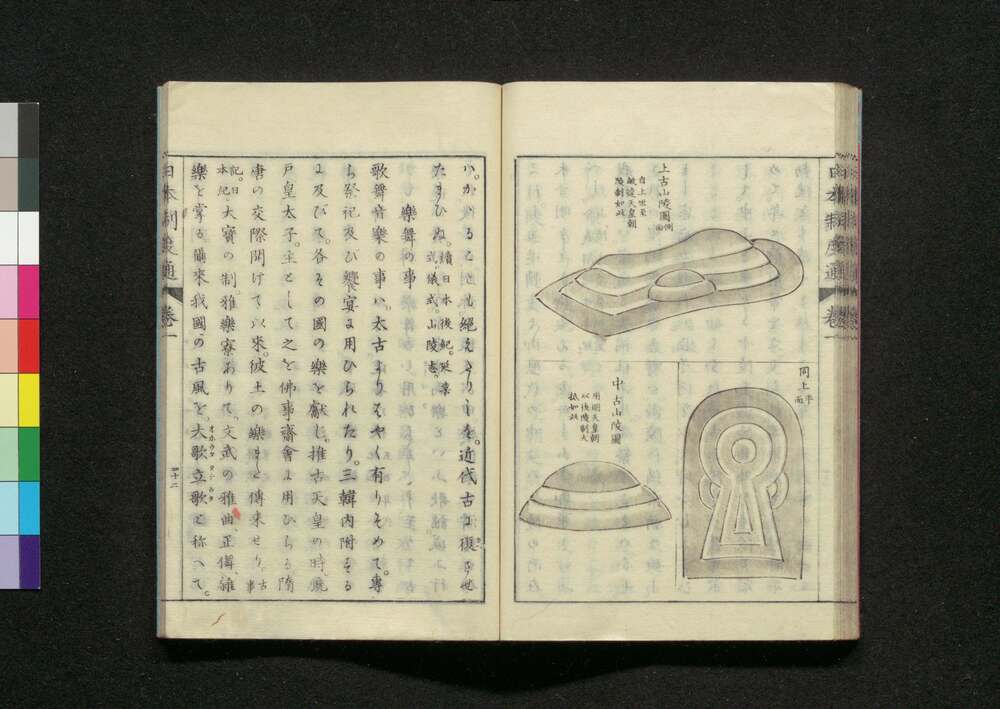 上古山陵圖側面
自上世至
敏達天皇朝
陵制如此
同上平面
中古山陵圖
用明天皇朝
以後陵制大
抵如此
日本制度通
卷一
たまひぬ。續日本後紀。延喜式。儀式。山陵志。
樂舞の事
歌舞音樂の事ハ。太古よりはやく有りそめて。專
ら祭祀及び饗宴に用ひられたり。三韓内附する
に及びて。各その國の樂を獻し。推古天皇の時。廐
戸皇太子。主として之を佛事齋會に用ひらる。隋
唐の交際開けて以來。彼土の樂多と傳来せり。古事
記。日本紀。大寶の制。雅樂寮ありて。文武の雅曲。正儛雜
樂を掌る。爾來我國の古風を。大歌立歌と稱へて。
オホウタ タチウタ
日本制度通
卷一
四十二